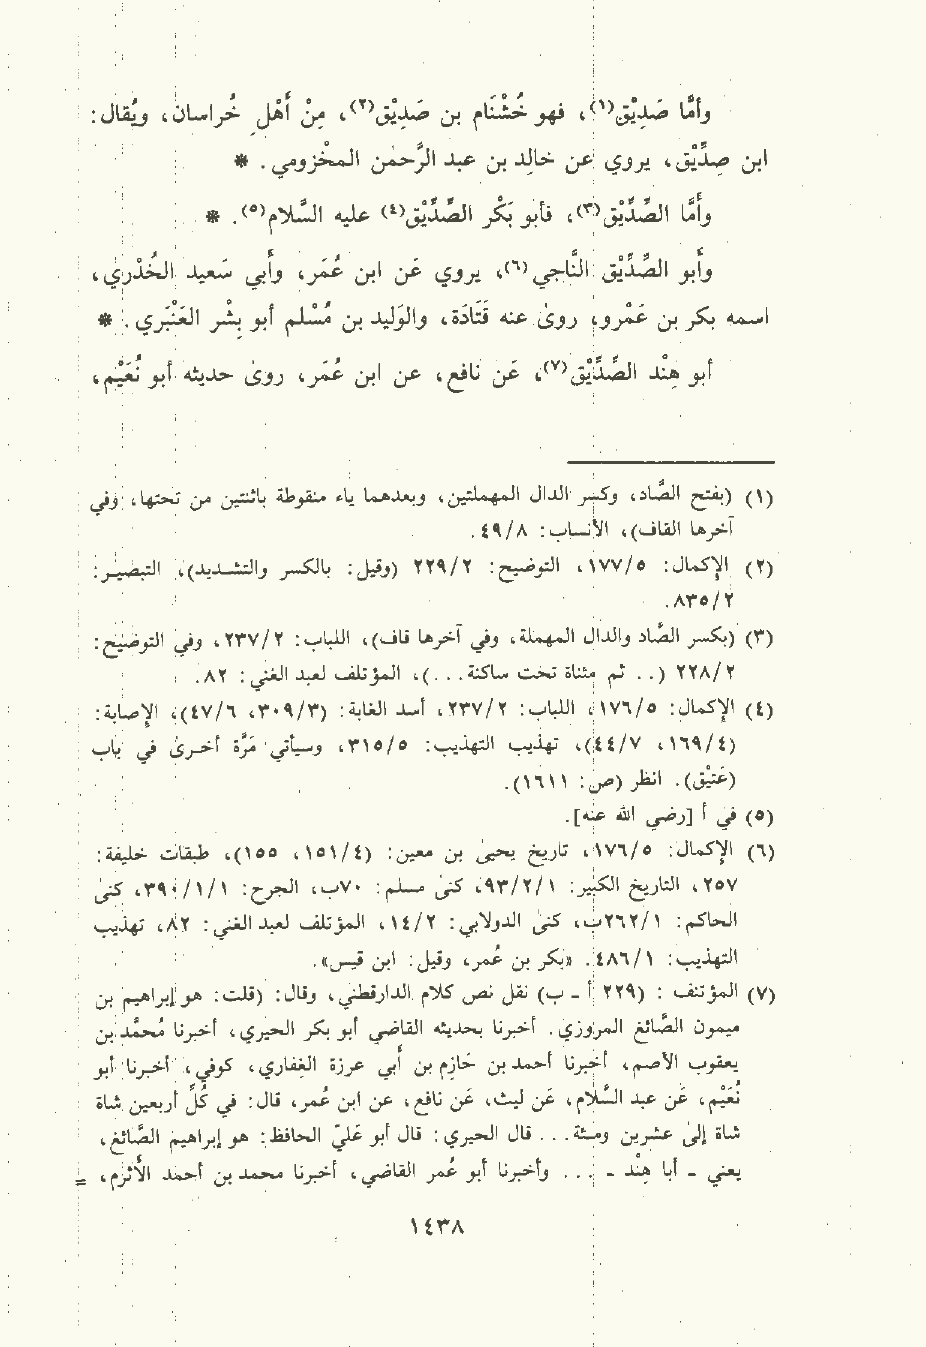 وأمَّا صَدِيْق(١)، فهو خُشْنَام بن صَدِيْق(٢)، مِنْ أَهْلِ خُراسان، ويُقال:
ابن صِدِّيْق، يروي عن خالِد بن عبد الرَّحمٰن المخْزومي. *
وأَمَّا الصِّدِّيْق(٣)، فأبو بَكْر الصِّدِّيْق(٤) عليه السَّلام(٥). *
وأَبو الصِّدِّيْق النَّاجي(٦)، يروي عَن ابن عُمَر، وأَبي سَعيد الخُدْرِي،
اسمه بكر بن عَمْرو، روىٰ عنه قَتَادَة، والوَليد بن مُسْلم أبو بِشْر العَنْبَري. *
أبو هِنْد الصِّدِّيْق(٧)، عَن نافع، عن ابن عُمَر، روىٰ حديثه أبو نُعَيْم،
(١) (بفتح الصَّاد، وكسر الدال المهملتين، وبعدهما ياء منقوطة باثنتين من تحتها، وفي
آخرها القاف)، الأنساب: ٤٩/٨.
(٢) الإكمال: ١٧٧/٥، التوضيح: ٢٢٩/٢ (وقيل: بالكسر والتشديد)، التبصير:
٨٣٥/٢.
(٣) (بكسر الصَّاد والدال المهملة، وفي آخرها قاف)، اللباب: ٢٣٧/٢، وفي التوضيح:
٢٢٨/٢ (.. ثم مثناة تحت ساكنة...)، المؤتلف لعبد الغني: ٨٢.
(٤) الإكمال: ١٧٦/٥، اللباب: ٢٣٧/٢، أسد الغابة: (٣٠٩/٣، ٤٧/٦)، الإصابة:
(١٦٩/٤، ٤٤/٧)، تهذيب التهذيب: ٣١٥/٥، وسيأتي مَرَّة أخرىٰ في باب
(عَتيْق). انظر (ص: ١٦١١).
(٥) في أ [رضي الله عنه].
(٦) الإكمال: ١٧٦/٥، تاريخ يحيىٰ بن معين: (١٥١/٤، ١٥٥)، طبقات خليفة:
٢٥٧، التاريخ الكبير: ٩٣/٢/١، كنىٰ مسلم: ٧٠ب، الجرح: ٣٩٠/١/١، كنىٰ
الحاكم: ٢٦٢/١ب، كنىٰ الدولابي: ١٤/٢، المؤتلف لعبد الغني: ٨٢، تهذيب
التهذيب: ٤٨٦/١. «بكر بن عُمر، وقيل: ابن قيس».
(٧) المؤتنف : (٢٢٩ أ - ب) نقل نص كلام الدارقطني، وقال: (قلت: هو إبراهيم بن
ميمون الصَّائغ المروزي. أخبرنا بحديثه القاضي أبو بكر الحيري، أخبرنا مُحمَّد بن
يعقوب الأصم، أخبرنا أحمد بن حَازِم بن أبي عرزة الغِفاري، كوفي، أخبرنا أبو
نُعَيْم، عَن عبد السَّلام، عَن ليث، عَن نافع، عن ابن عُمر، قال: في كُلِّ أربعين شاة
شاة إلىٰ عشرين ومئة... قال الحيري: قال أبو عَليّ الحافظ: هو إبراهيم الصَّائغ،
يعني - أبا هِنْد - ... وأخبرنا أبو عُمر القاضي، أخبرنا محمد بن أحمد الأَثرم، =
١٤٣٨